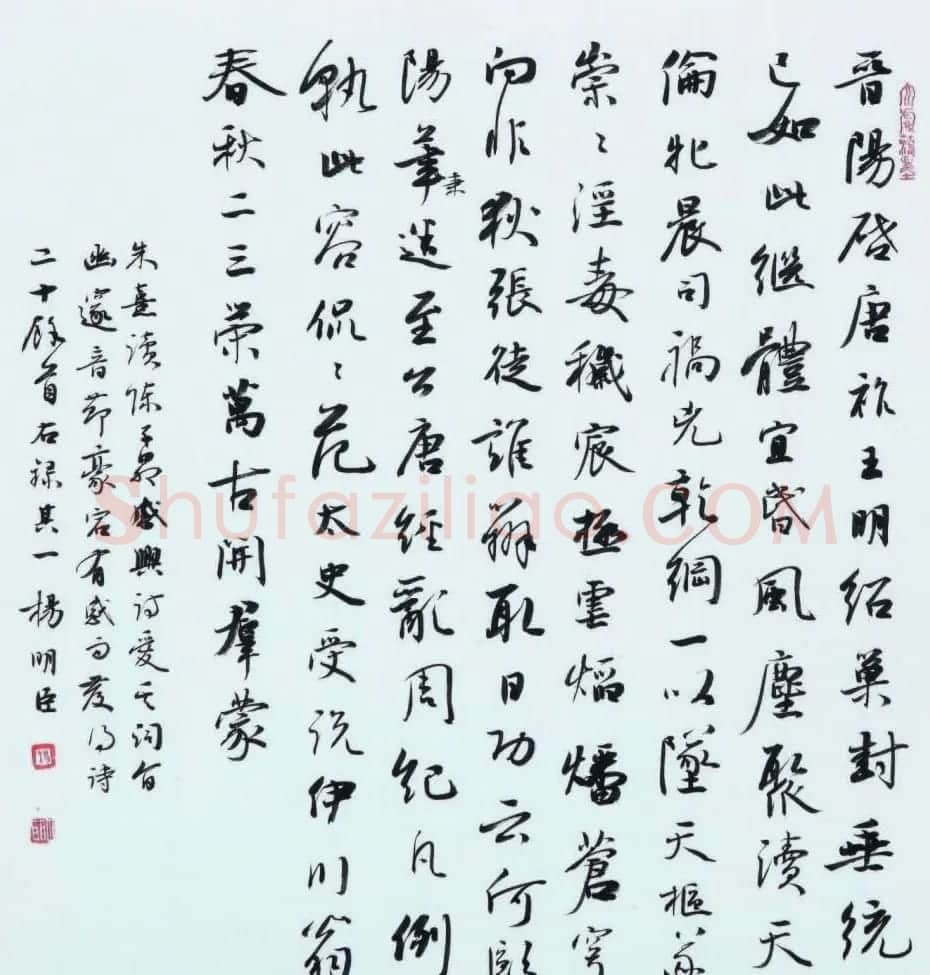 晉陽啓唐祚王明紹巢封垂統
已如此繼體宜昬風塵聚瀆天
倫牝晨司禍凶乾綱一以墜天樞遂
崇〻淫毒穢宸極虐焰燔蒼穹
向非狄張徒誰辦取日功云何歐
陽筆秉迷至公唐經亂周紀凡例
孰此容侃〻范太史受説伊川翁
春秋二三策萬古開羣蒙
朱熹讀陳子昂感興詩愛其詞旨
幽邃音節豪宕有感而發得詩
二十餘首右録其一楊明臣
Shufaziliao.COM